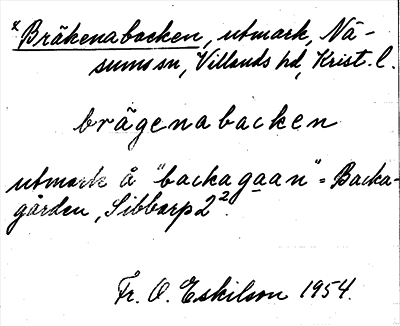 *Bräkenabacken, utmark, Nä-
sums sn, Villands hd, Krist. l.
brägenabacken
utmark å "backagaan" = Backa-
gården, Sibbarp 2².
Fr. O. Eskilson 1954.